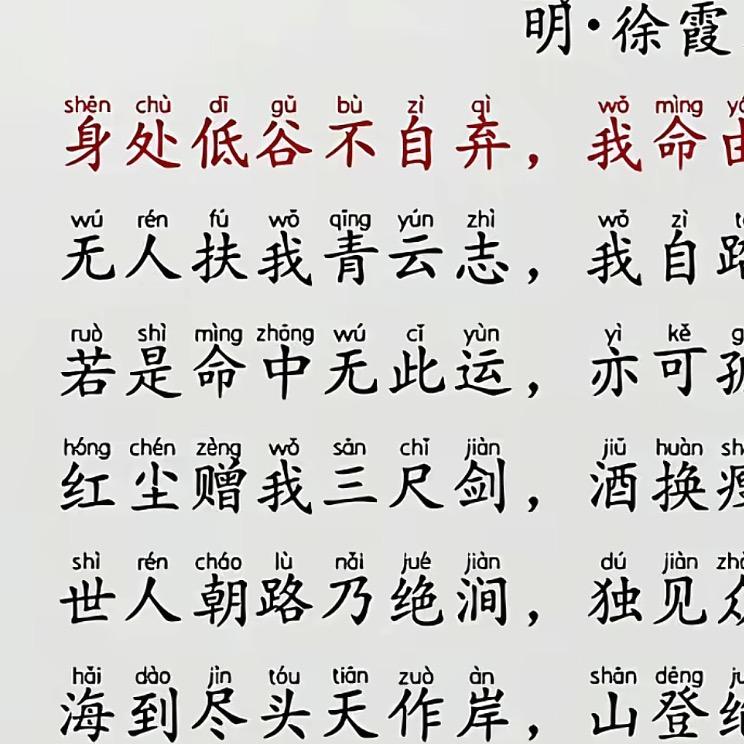 明·徐霞
shēn chù dī gǔ bù zì qì wǒ mìng
身处低谷不自弃，我命由
wú rén fú wǒ qīng yún zhì wǒ zì
无人扶我青云志，我自踏
ruò shì mìng zhōng wú cǐ yùn yì kě
若是命中无此运，亦可孤
hóng chén zèng wǒ sān chǐ jiàn jiǔ huàn
红尘赠我三尺剑，酒换瘦
shì rén cháo lù nǎi jué jiàn dú jiàn
世人朝路乃绝涧，独见众
hǎi dào jìn tóu tiān zuò àn shān dēng
海到尽头天作岸，山登绝